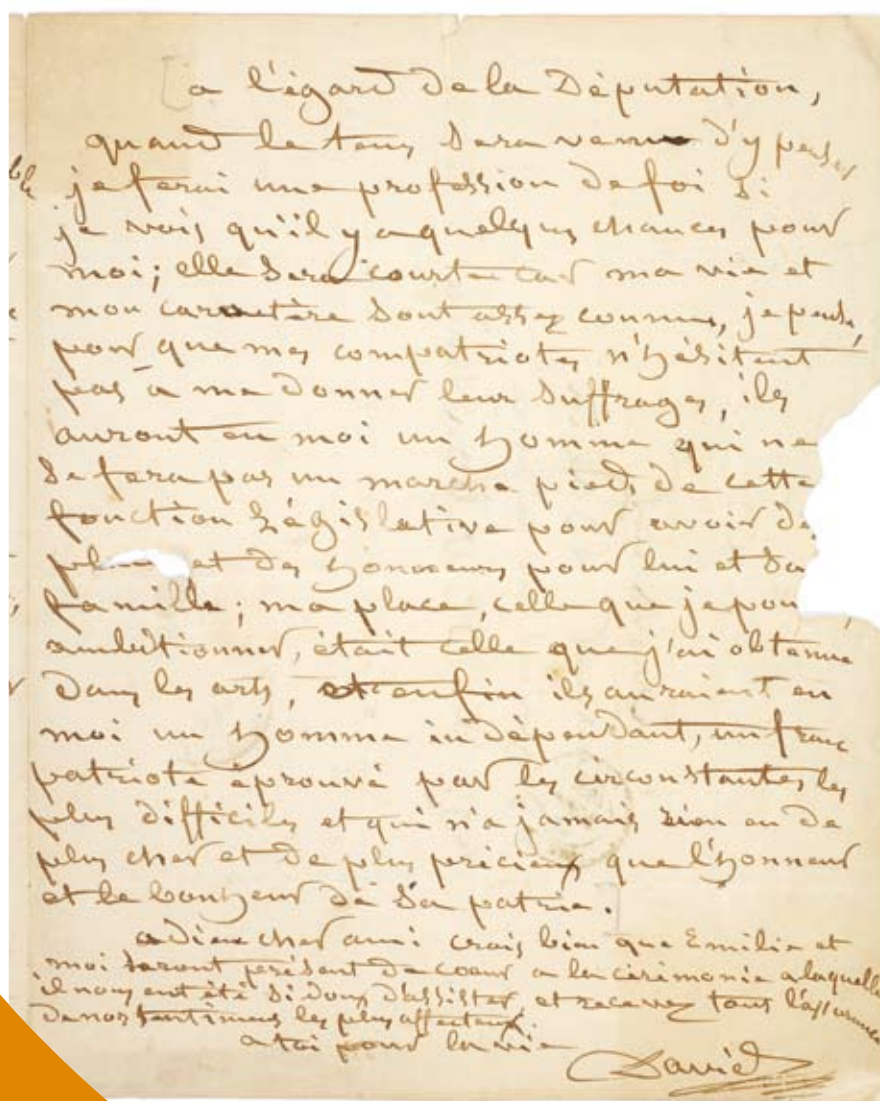 a l'égard de la Députation,
quand le tems sera venu d'y penser
je ferai une profession de foi si
je vois qu'il y a quelques chances pour
moi; elle sera courte car ma vie et
mon caractère sont assez connus, je pense,
pour que mes compatriotes n'hésitent
pas a me donner leur suffrages, ils
auront en moi un homme qui ne
se fera pas un marche pied de cette
fonction Législative pour avoir de
et des honneurs pour lui et sa
famille; ma place, celle que je
ambitionner, était celle que j'ai obtenue
dans les arts, et enfin ils auraient en
moi un homme indépendant, un franc
patriote éprouvé par les circonstantes les
plus difficiles et qui n'a jamais rien eu de
plus cher et de plus précieux que l'honneur
et le bonheur de sa patrie.
adieu cher ami crois bien que Emilie et
moi seront présent de coeur a la cérémonie a laquelle
il nous eut été si doux d'assister, et recevez tous l'assurance
de nos sentimens les plus affectueux.
a toi pour la vie
David